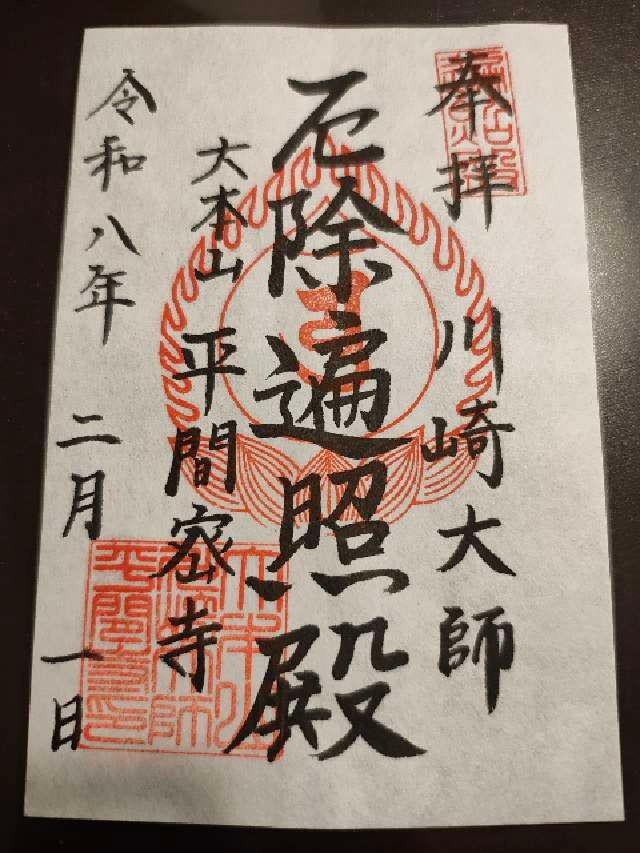 奉拝
川崎大師
厄除遍照殿
大本山
平間寺
令和八年
二月
一日